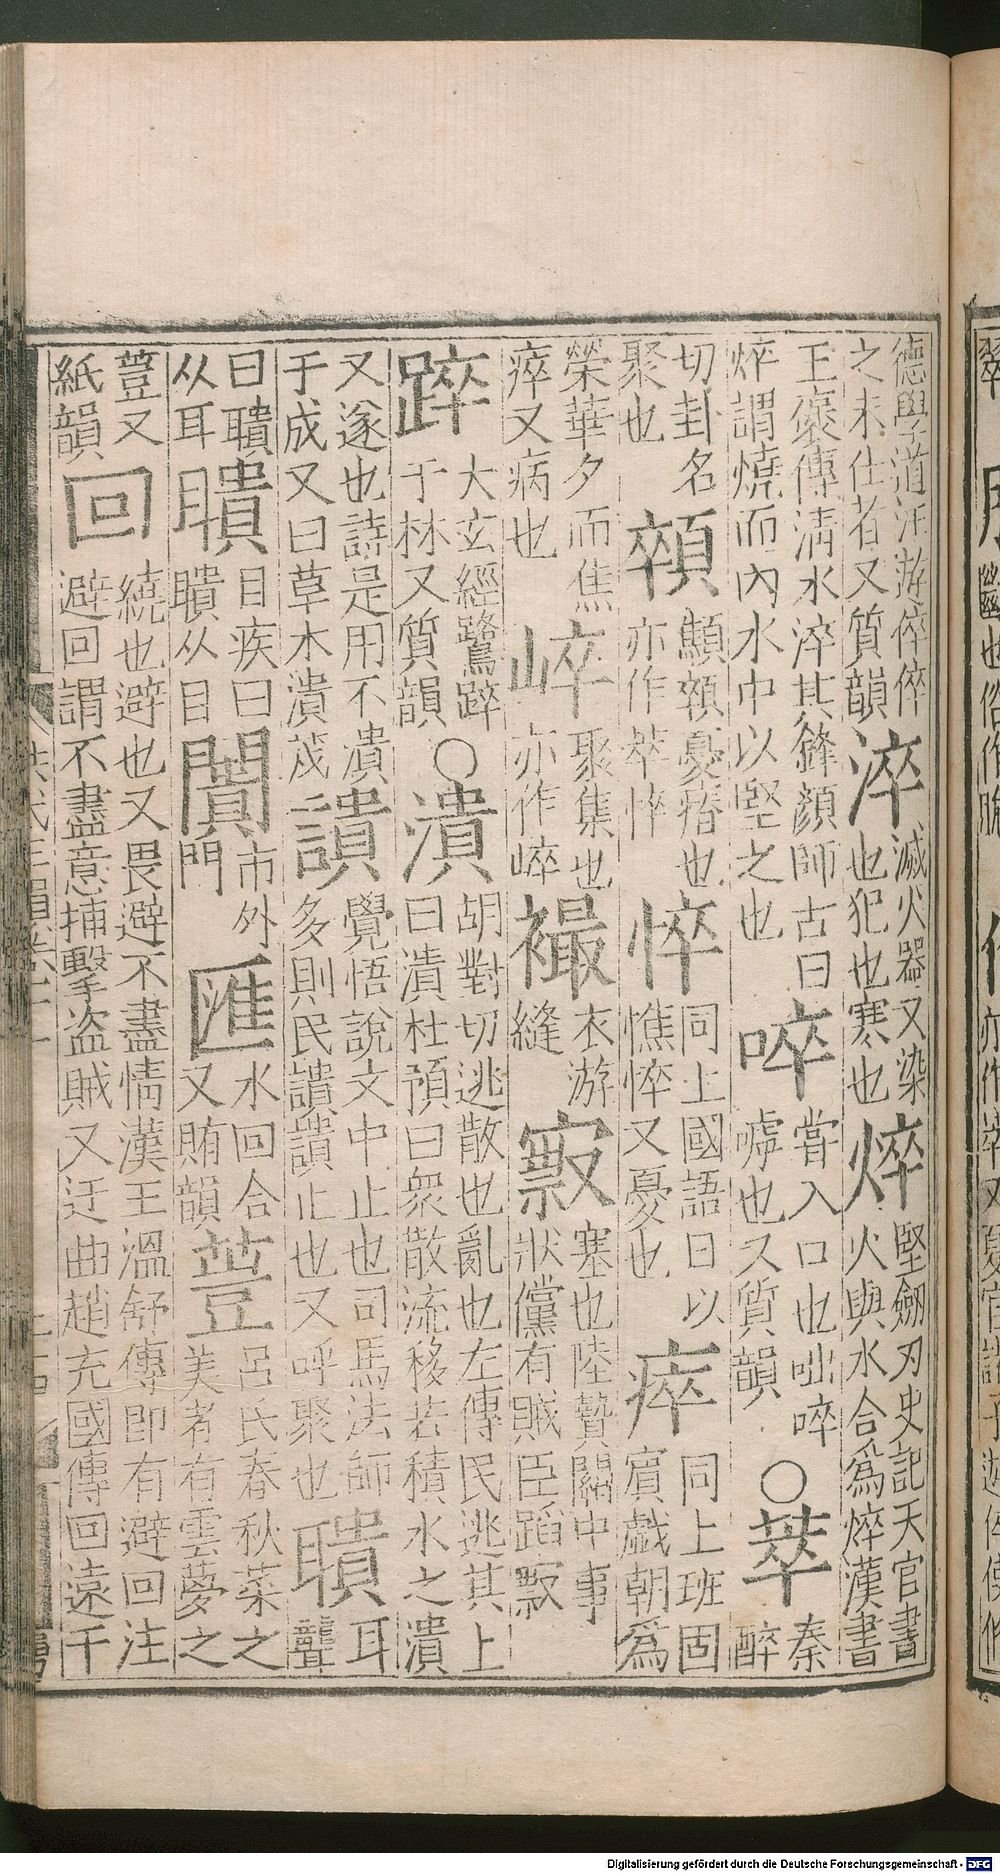 德學道汗游倅倅之未仕者又質韻淬滅火器又染也犯也寒也焠堅劒刃史記天官書火與水合爲焠漢書
王褒傳淸水淬其鋒顏師古曰焠謂燒而內水中以堅之也啐嘗入口也咄啐嘑也又質韻○萃秦醉
切卦名聚也顇顦顇憂瘠也亦作萃悴悴同上國語日以憔悴又憂也瘁同上班固賔戱朝爲
榮華夕而焦瘁又病也崪聚集也亦作崪襊衣游縫㝮塞也陸贄關中事狀儻有賊臣蹈㝮
踤大玄經鷺踤于林又質韻○潰胡對切逃散也亂也左傳民逃其上曰潰杜預曰衆散流移若積水之潰
又遂也詩是用不潰于成又曰草木潰茂䜋覺悟說文中止也司馬法師多則民䜋䜋止也又呼聚也聵耳聾
曰聵从耳瞶目疾曰瞶从目闠市外門匯水回合又賄韻䔇呂氏春秋菜之美者有雲夢之
䔇又紙韻回繞也避也又畏避不盡情漢王溫舒傳卽有避回注避回謂不盡意捕擊盜賊又迂曲趙充國傳回遠千
Digitalisierung gefördert durch die Deutsche Forschungsgemeinschaft - DFG